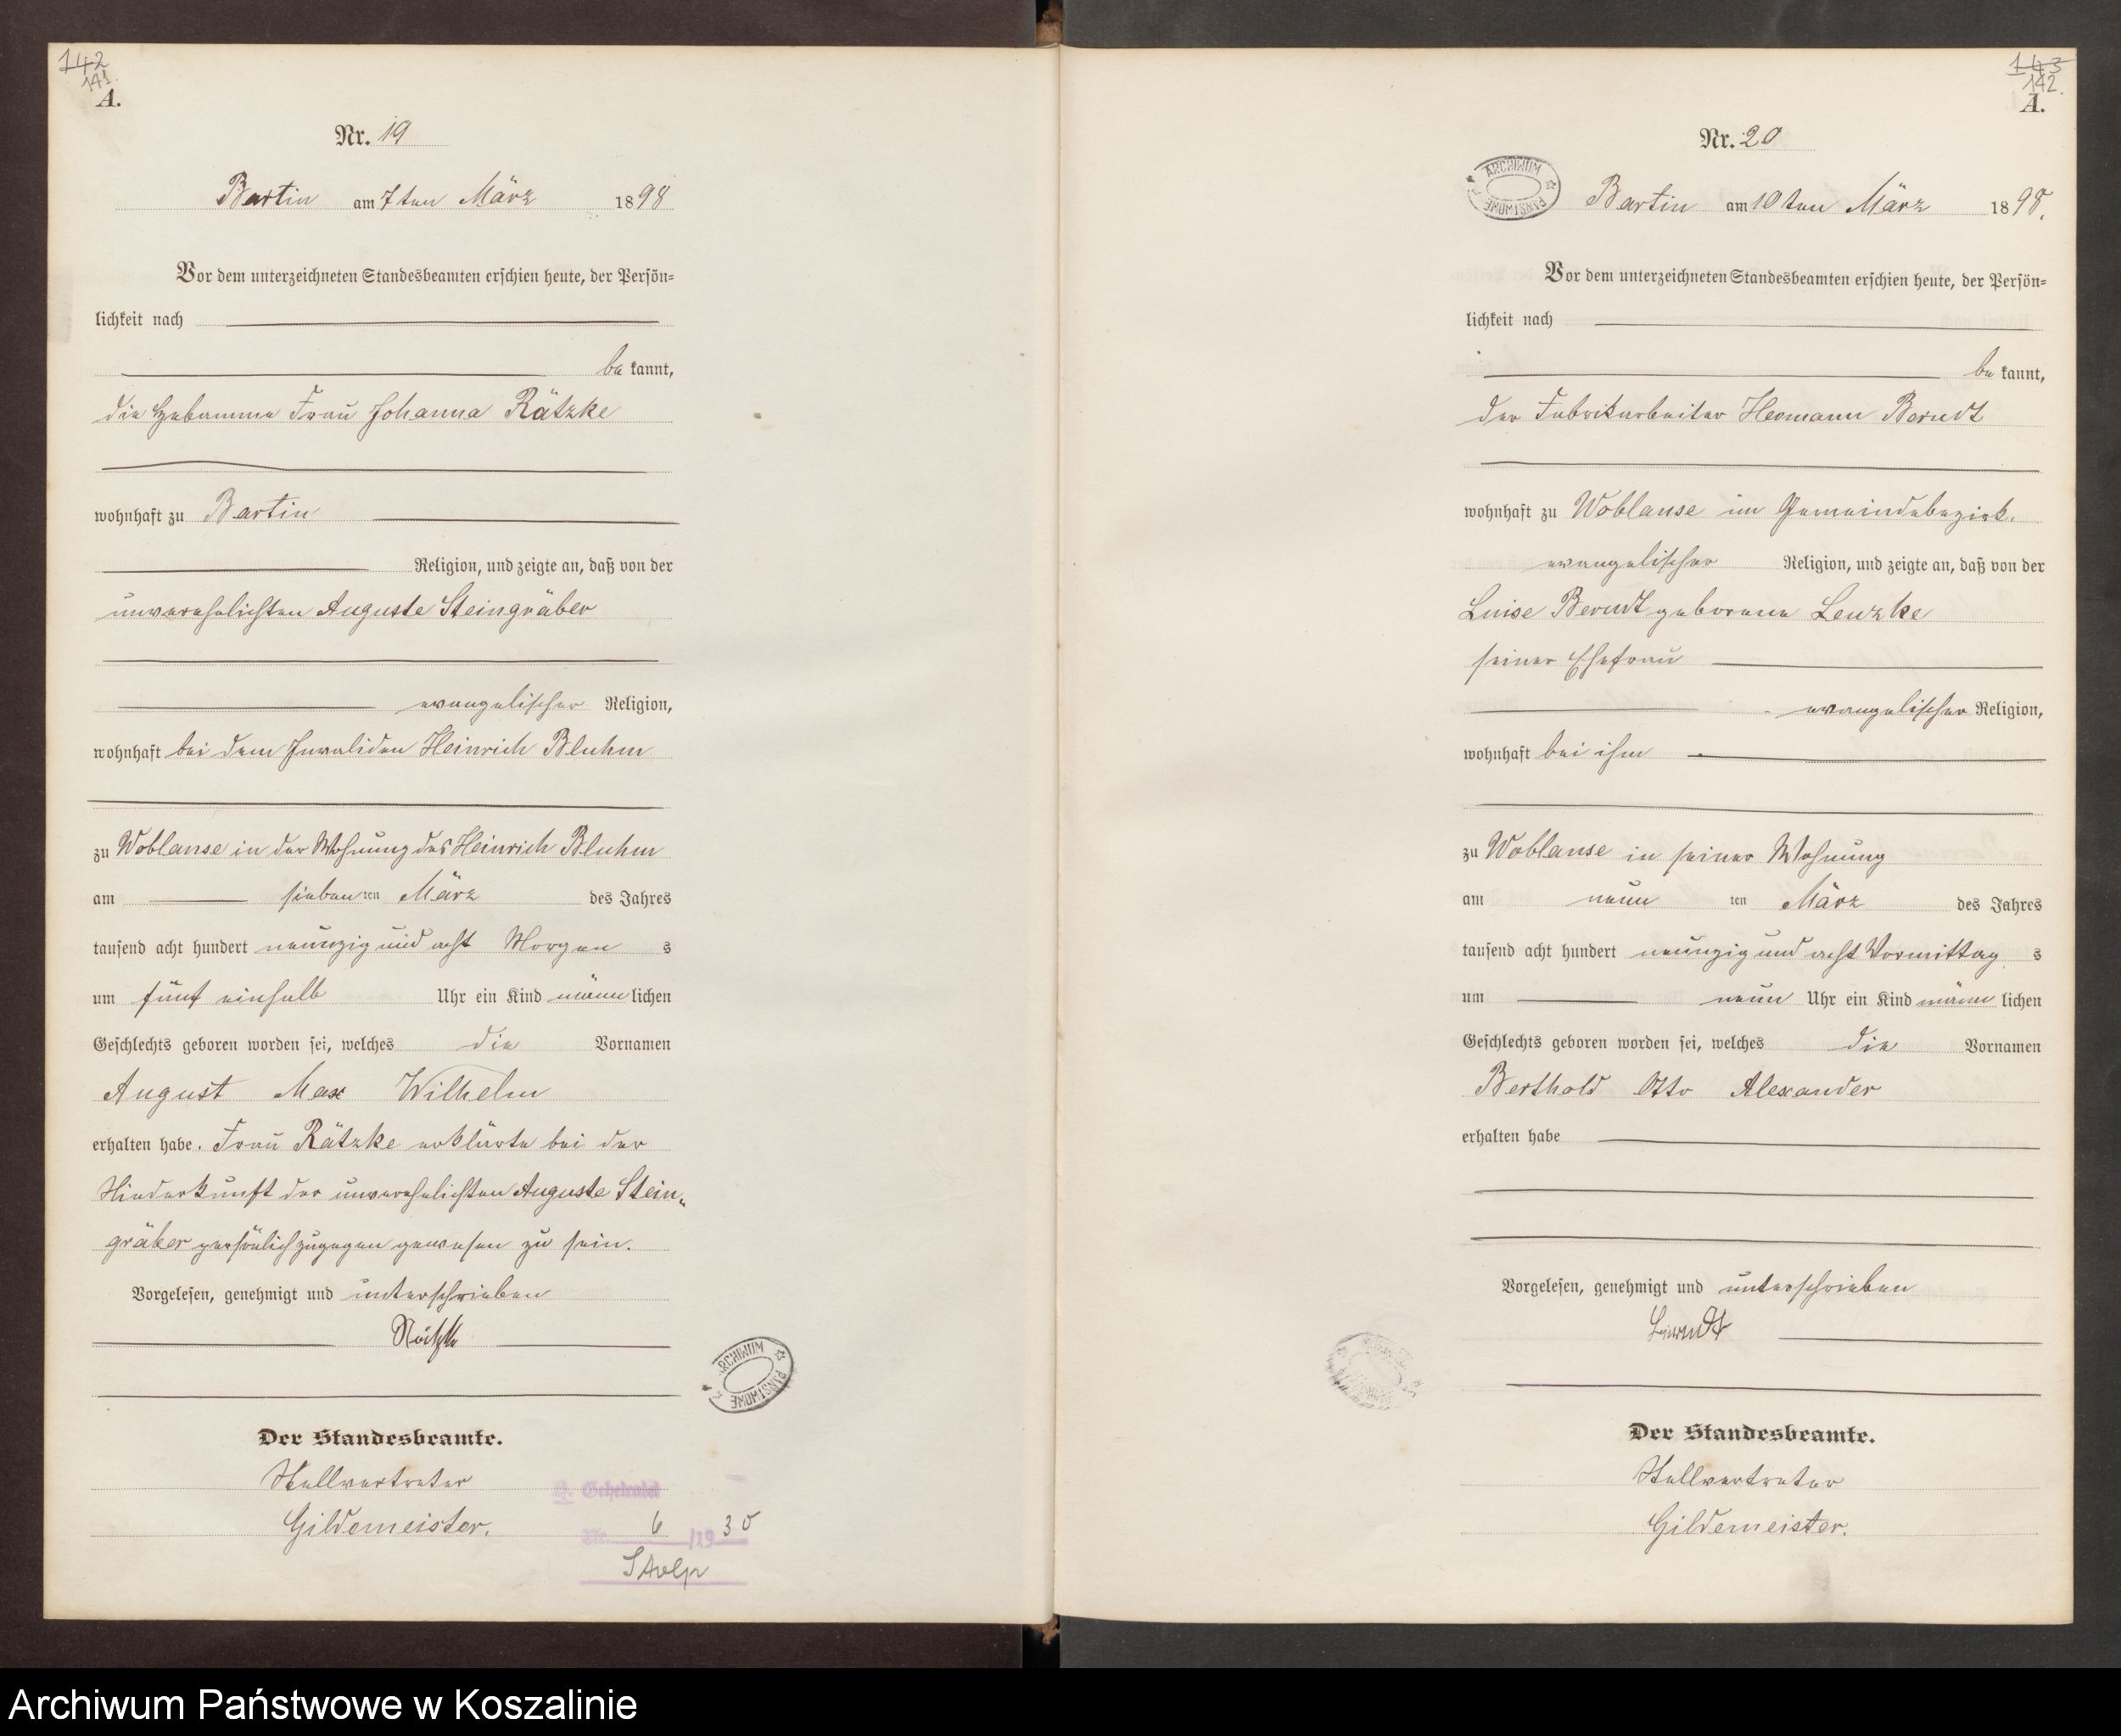 142
141.
A.
Nr. 19
Bartin am 7ten März 1898
Vor dem unterzeichneten Standesbeamten erschien heute, der Persön=
lichkeit nach
be kannt,
die Hebamme Frau Johanna Rätzke
wohnhaft zu Bartin
Religion, und zeigte an, daß von der
unverehelichten Auguste Steingräber
evangelischer Religion,
wohnhaft bei dem Invaliden Heinrich Bluhm
zu Woblanse in der Wohnung des Heinrich Bluhm
am sieben ten März des Jahres
tausend acht hundert neunzig und acht Morgen s
um fünf einhalb Uhr ein Kind männ lichen
Geschlechts geboren worden sei, welches die Vornamen
August Max Wilhelm
erhalten habe. Frau Rätzke erklärte bei der
Niederkunft der unverehelichten Auguste Stein„
gräber persönlich zugegen gewesen zu sein.
Vorgelesen, genehmigt und unterschrieben
Rätzke
Der Standesbeamte.
Stellvertreter
Gildemeister.
ARCHIWUM PAŃSTWOWE
Geheiratet
Nr. 6 /19 30
Stolp
143
142.
A.
Nr. 20
ARCHIWUM PAŃSTWOWE
Bartin am 10ten März 1898.
Vor dem unterzeichneten Standesbeamten erschien heute, der Persön=
lichkeit nach
be kannt,
der Fabrikarbeiter Hermann Berndt
wohnhaft zu Woblanse im Gemeindebezirk.
evangelischer Religion, und zeigte an, daß von der
Luise Berndt geborene Lenzke
seiner Ehefrau
evangelischer Religion,
wohnhaft bei ihm
zu Woblanse in seiner Wohnung
am neun ten März des Jahres
tausend acht hundert neunzig und acht Vormittag s
um neun Uhr ein Kind männ lichen
Geschlechts geboren worden sei, welches die Vornamen
Berthold Otto Alexander
erhalten habe
Vorgelesen, genehmigt und unterschrieben
Berndt
Der Standesbeamte.
Stellvertreter
Gildemeister.
Archiwum Państwowe w Koszalinie